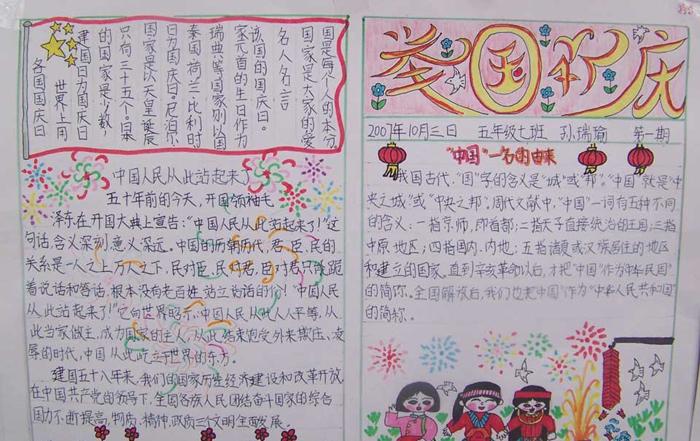 各国国庆日
世界上用
建国日为国庆日
的国家是少数,
只有三十五个。日本
国家是以天皇诞辰
日为国庆日,尼泊尔
泰国、荷兰、比利时
瑞典等国家别以国
家元首的生日作为
该国的国庆日。
名人名言
国家是大家的爱
国是每个人的本分
中国人民从此站起来了
五十年前的今天,开国领袖毛
泽东在开国大典上宣告:"中国人民从此站起来了!"这
句话,含义深刻,意义深远。中国的历朝历代,君、臣、民的
关系是一人之上万人之下,民对臣、民对君、臣对君只能跪
着说话和答话,根本没有老百姓站立说话的份!"中国人民
从此站起来了!"它向世界昭示:中国人民从此人人平等,从
此当家做主,成为国家的主人,从此结束饱受外来欺压、凌
辱的时代,中国从此屹立于世界的东方。
建国五十八年来,我们的国家历经经济建设和改革开放
在中国共产党的领导下,全国各族人民团结奋斗国家的综合
国力不断提高,物质、精神、政质三个文明全面发展。
举国欢庆
2007年10月三日 五年级七班 孙瑞瑜 第一期
"中国"一名的由来
我国古代,"国"字的含义是"城"或"邦"。"中国"就是"中
央之城"或"中央之邦"。周代文献中,"中国"一词有五种不同
的含义:一指京师,即首都;二指天子直接统治的王国;三指
中原地区;四指国内、内地;五指诸夏或汉族居住的地区
和建立的国家。直到辛亥革命以后,才把"中国"作为"中华民国"
的简你。全国解放后,我们也把"中国"作为"中华人民共和国"
的简称。